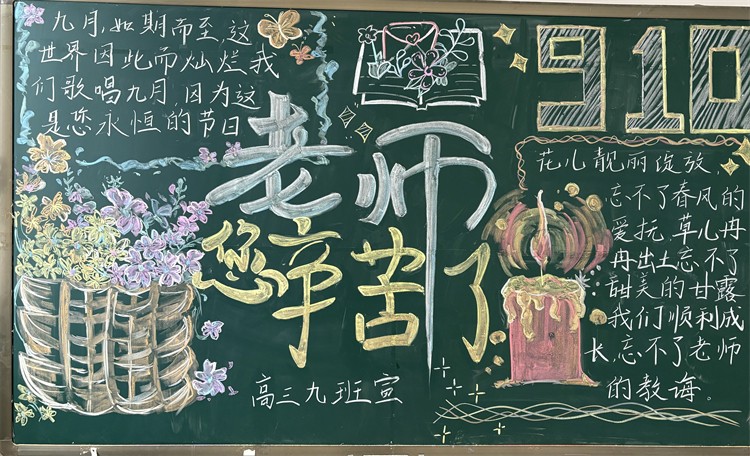 九月,如期而至,这
世界因此而灿烂我
们歌唱九月,因为这
是您永恒的节日
910
老师
您辛苦了
花儿靓丽绽放,
忘不了春风的
爱抚,草儿冉
冉出土忘不了
甜美的甘露
我们顺利成
长,忘不了老师
的教诲。
高三九班宣